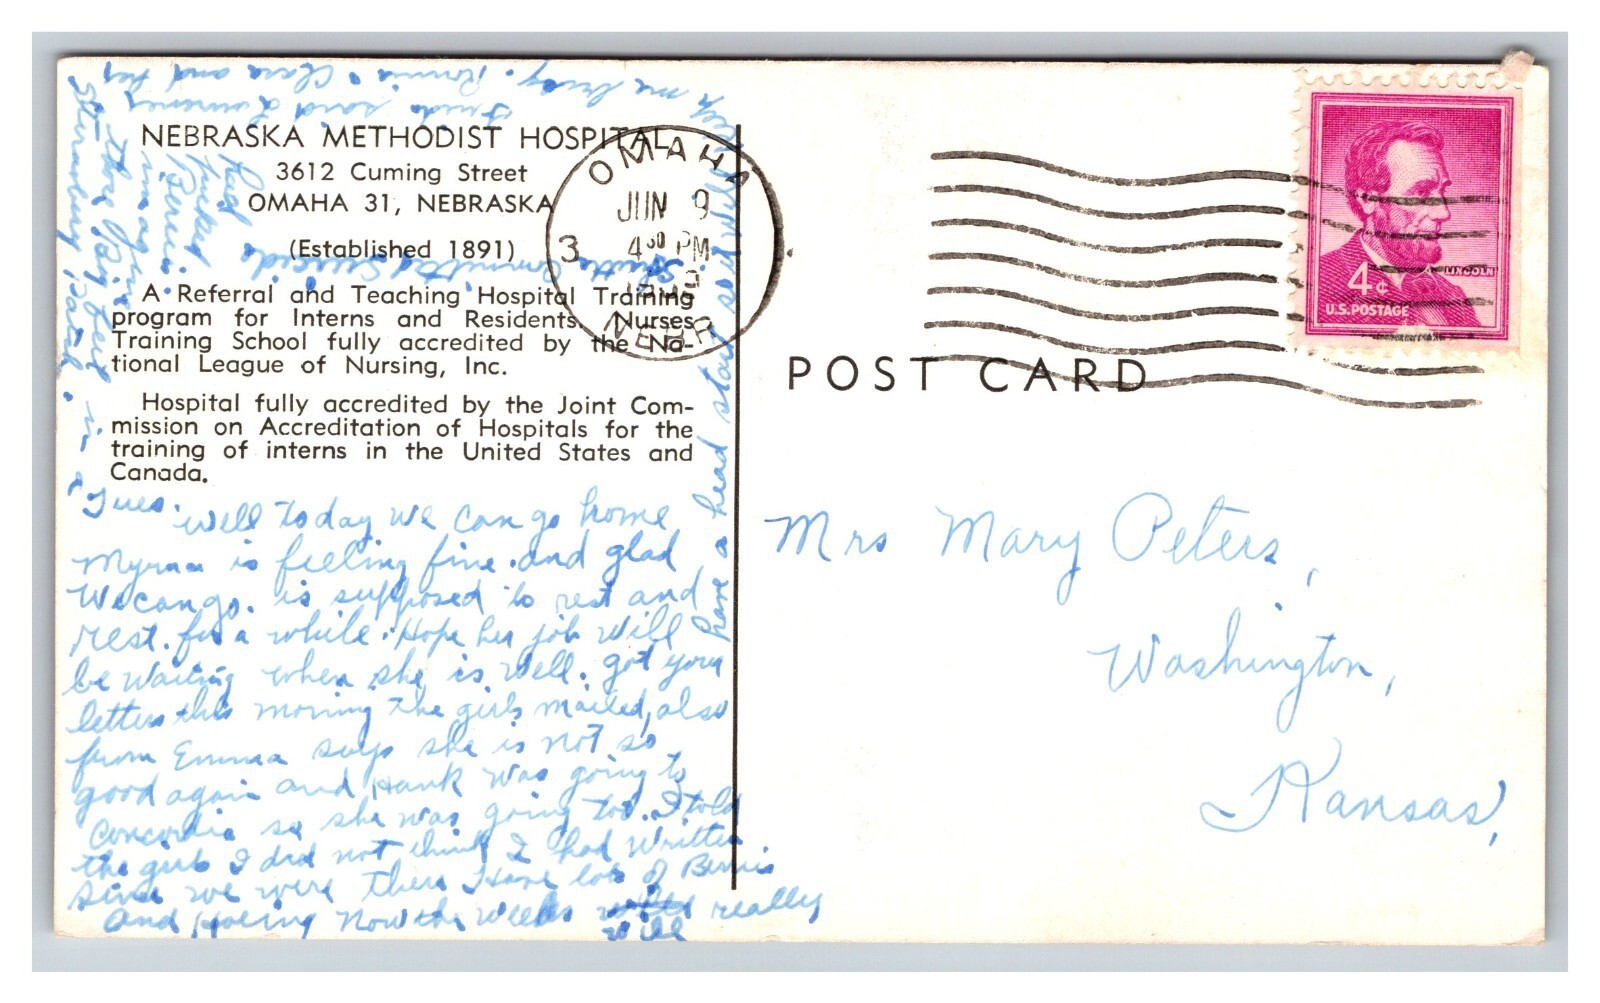 NEBRASKA METHODIST HOSPITAL
3612 Cuming Street
OMAHA 31, NEBRASKA
(Established 1891)
A Referral and Teaching Hospital Training
program for Interns and Residents. Nurses
Training School fully accredited by the Na-
tional League of Nursing, Inc.
Hospital fully accredited by the Joint Com-
mission on Accreditation of Hospitals for the
training of interns in the United States and
Canada.
OMAHA
JUN 9
4 30 PM
3
NEBR
4¢
LINCOLN
U.S. POSTAGE
POST CARD
Mrs Mary Peters,
Washington,
Kansas,
Tues.
Well today we can go home
Myrna is feeling fine and glad
We can go. is supposed to rest and
rest for a while. Hope her job will
be waiting when she is well. got your
letter this morning the girls mailed, also
from Emma says she is not so
good again and Hank was going to
Concordia so she was going too. I told
the girls I did not think I had written
since we were there I have lots of
And Hoeing Now the weeds really
will
have a head start
keep me busy.
Clara and her
said
had
the Biggest
Strawberry patch
in